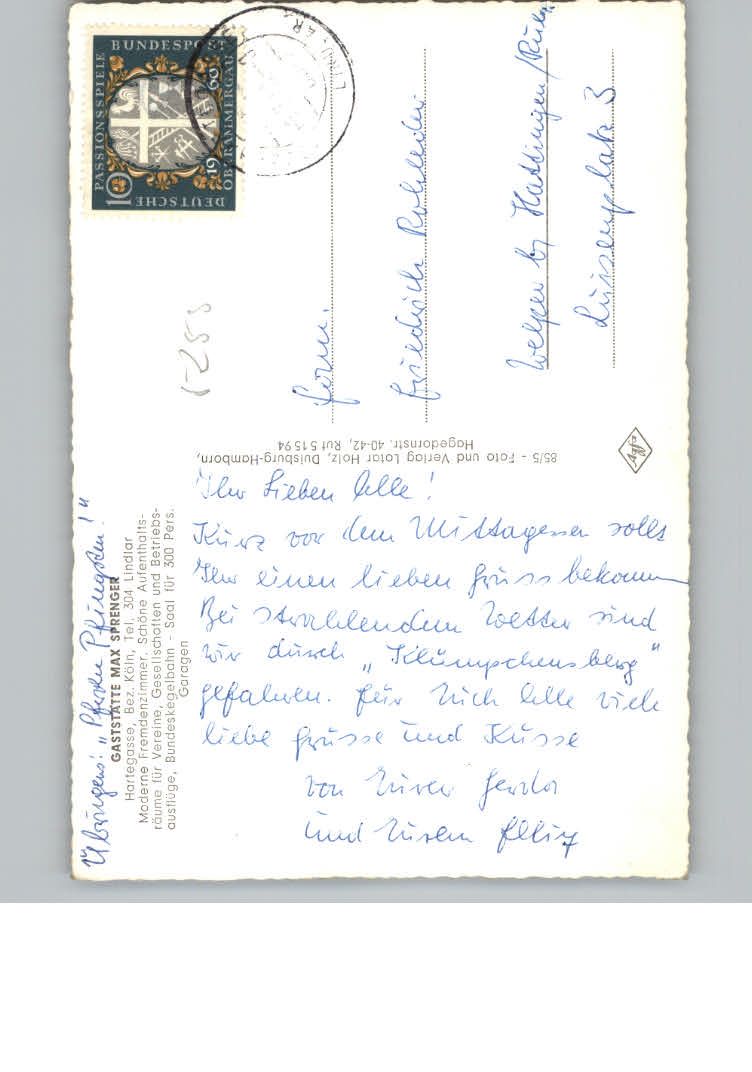 DEUTSCHE BUNDESPOST
PASSIONSSPIELE
OBERAMMERGAU
1960
10
LINDLAR
Fam.
Friedrich Rohleder
Welper by Hattingen/Ruhr
Luisenplatz 3
1253
85/5 - Foto und Verlag Lotar Holz, Duisburg-Hamborn,
Hagedornstr. 40-42, Ruf 51594
Agfa
GASTSTÄTTE MAX SPRENGER
Hartegasse, Bez. Köln, Tel. 304 Lindlar
Moderne Fremdenzimmer. Schöne Aufenthalts-
räume für Vereine, Gesellschaften und Betriebs-
ausflüge, Bundeskegelbahn - Saal für 300 Pers.
Garagen
Ihr Lieben Alle!
Kurz vor dem Mittagessen sollt
Ihr einen lieben Gruss bekommen
Bei strahlendem Wetter sind
wir durch „Klümpchensberg"
gefahren. Für Euch Alle viele
liebe Grüsse und Küsse
von Eurer Gerda
und Eurem
Übrigens: „Pfrohe Pfingsten!"